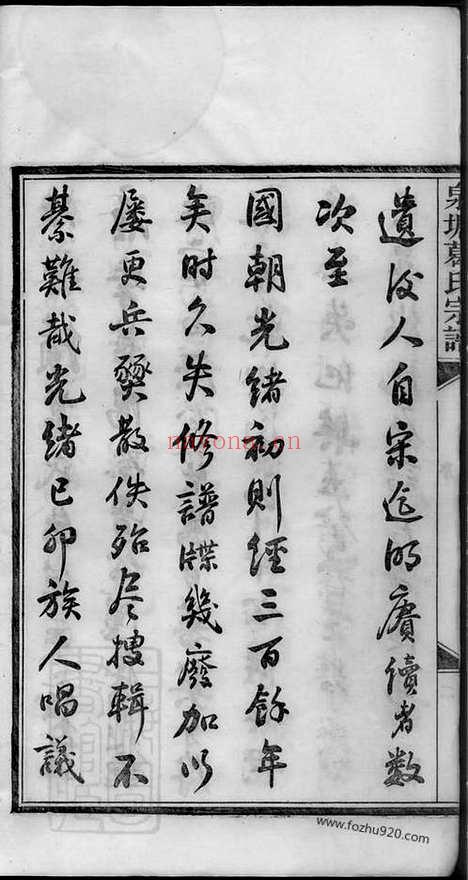 泉塘葛氏宗譜
遺後人自宋迄明賡續者數
次至
國朝光緒初則經三百餘年
矣时久失修譜牒幾廢加以
屡更兵燹散佚殆尽搜輯不
綦難哉光緒己卯族人唱議
www.fozhu920.com